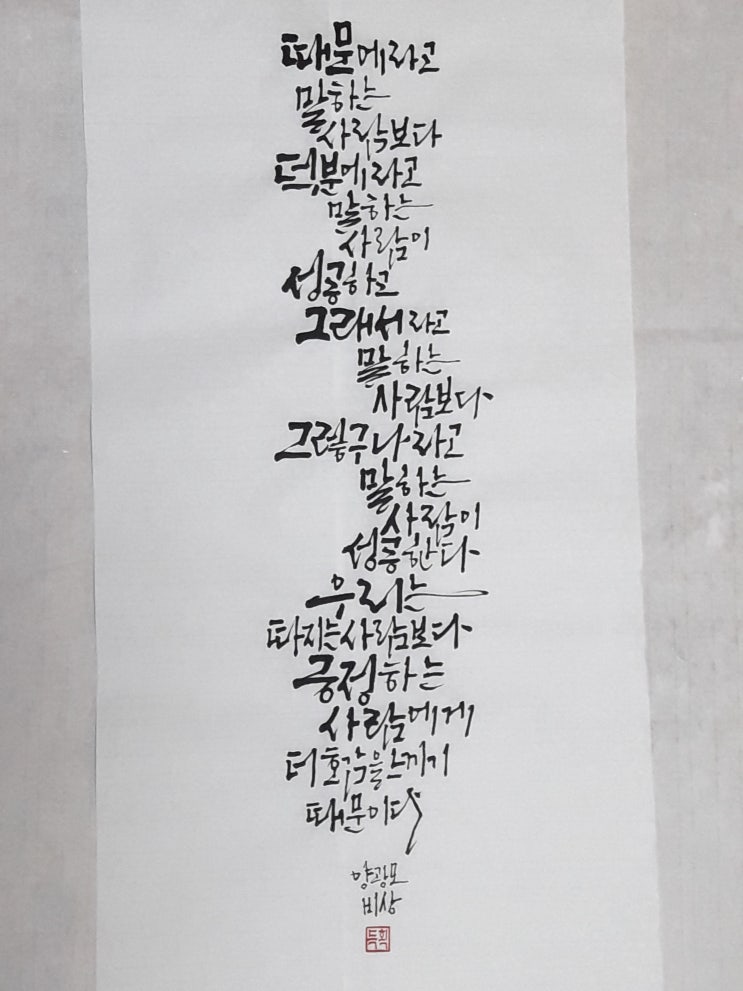 때문에라고
말하는
사람보다
덕분에라고
말하는
사람이
성공하고
그래서라고
말하는
사람보다
그렇구나라고
말하는
사람이
성공한다
우리는
따지는사람보다
긍정하는
사람에게
더호감을느끼기
때문이다
양광모
비상